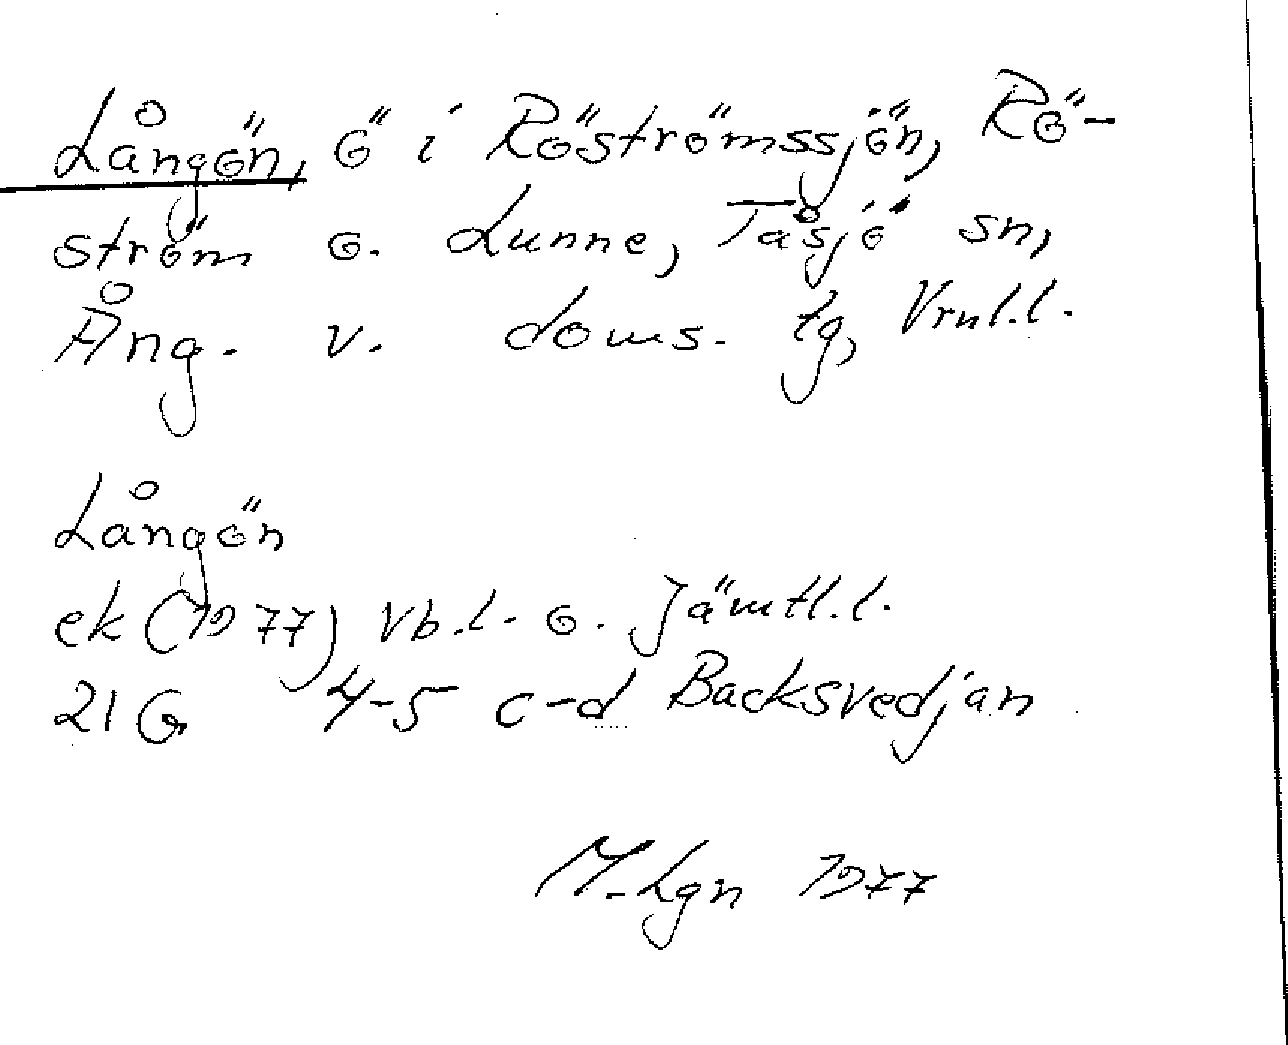 Långön, ö i Röströmssjön, Rö-
ström o. Lunne, Tåsjö sn,
Ång. v. doms. tg, Vrnl.l.
Långön
ek (1977) Vb.l. o. Jämtl.l.
21 G 4-5 c-d Backsvedjan
M-Lgn 1977